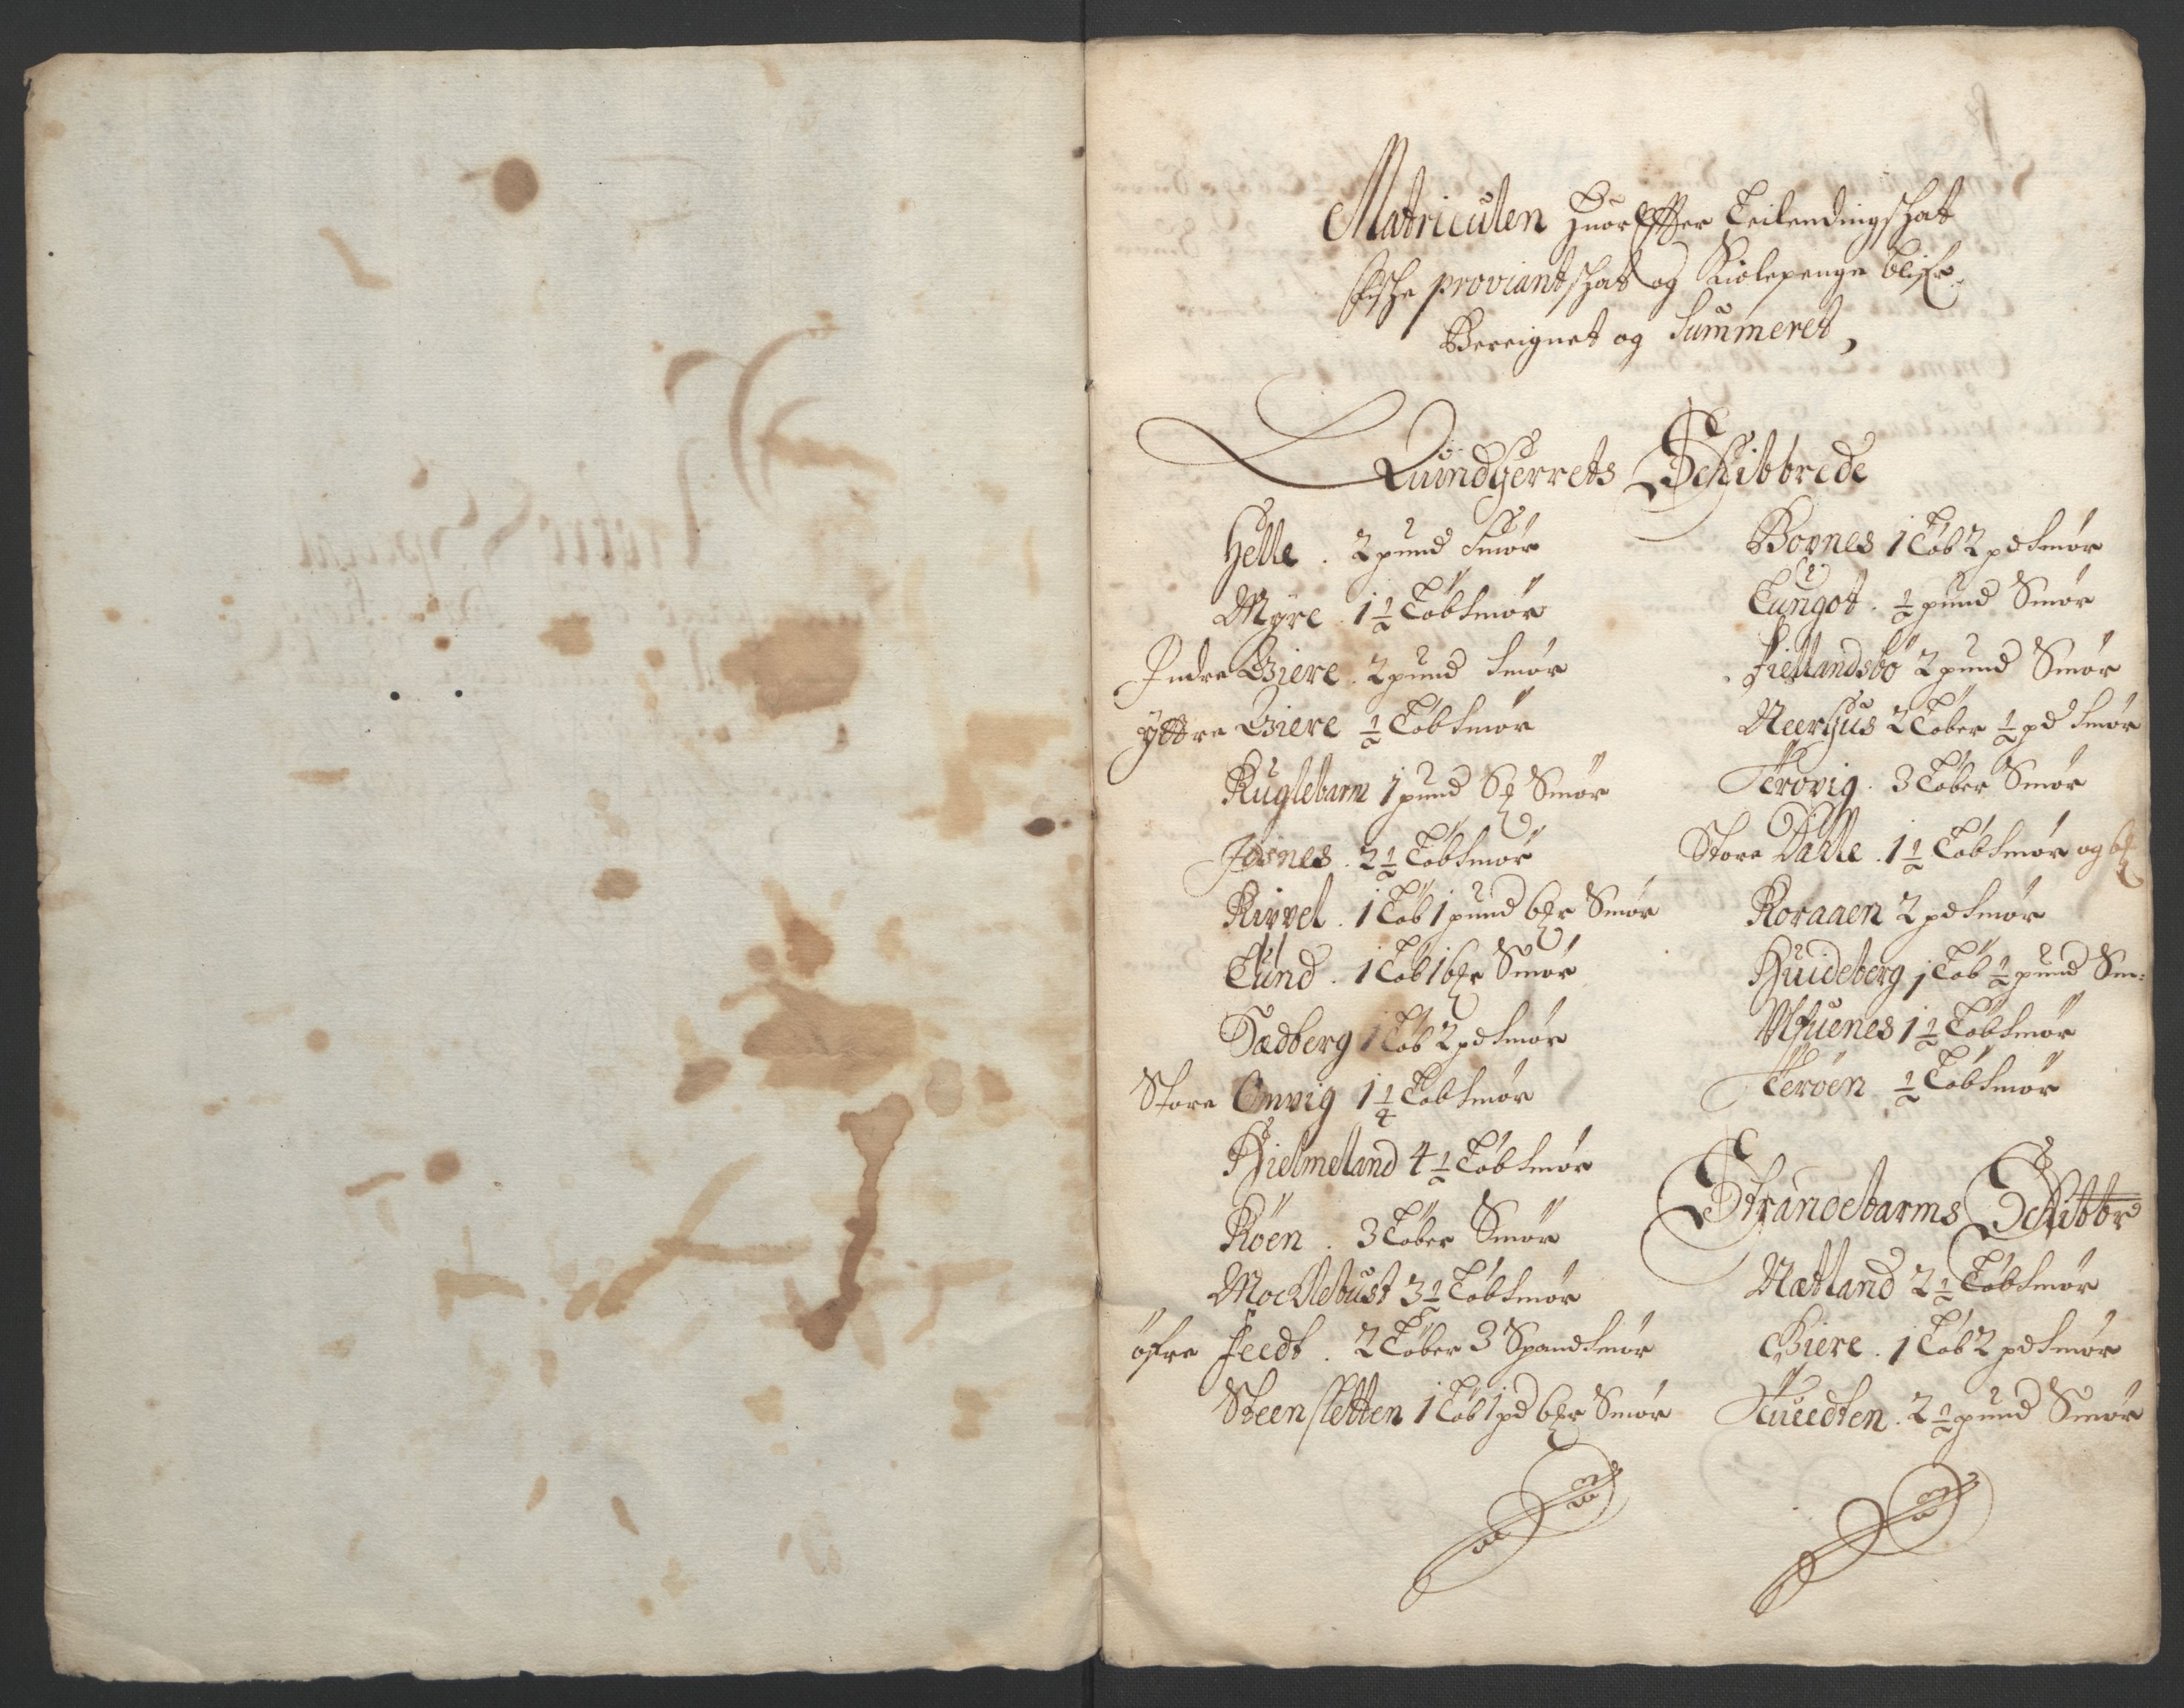 Matriculen Huor Effter Leilendingschat
proviantschat og Kiolepenge blifr
Bereignet og Summeret,
Quindherrets Schibbrede
Helle . 2 pund Smör
Myre . 1 1/2 Löb Smör
Indre Giere . 2 pund Smör
Yttre Giere 1/2 Löb Smör
Kuglebarm 1 pund Smör
Josnes . 2 1/2 Löb Smör
Rivvel . 1 Löb 1 pund 6 Smör
Lund . 1 Löb 1 Smör
Sædberg 1 Löb 2 pd Smör
Store Omvig 1 1/4 Löb Smör
Hielmeland 4 1/2 Löb Smör
Röen . 3 Löber Smör
Mocklebust 3 1/2 Löb Smör
öfre Feedt . 2 Löber 3 Spand Smör
Steensletten 1 Löb 1 pd 6 Smör
Bognes 1 Löb 2 pd Smör
Tungot . 1/2 pund Smör
Fiellandsbö 2 pund Smör
Neerhus 2 Löber 1/2 pd Smör
Terovig . 3 Löber Smör
Store Dalle . 1 1/2 Löb Smör og
Roraaen 2 pd Smör
Huideberg 1 Löb 1/2 pund Sm:
Alfuenes 1 1/2 Löb Smör
Teröen 1/2 Löb Smör
Strandebarms Schibbr
Nætland 2 1/2 Löb Smör
Giere . 1 Löb 2 pd Smör
Tuedten . 2 1/2 pund Smör